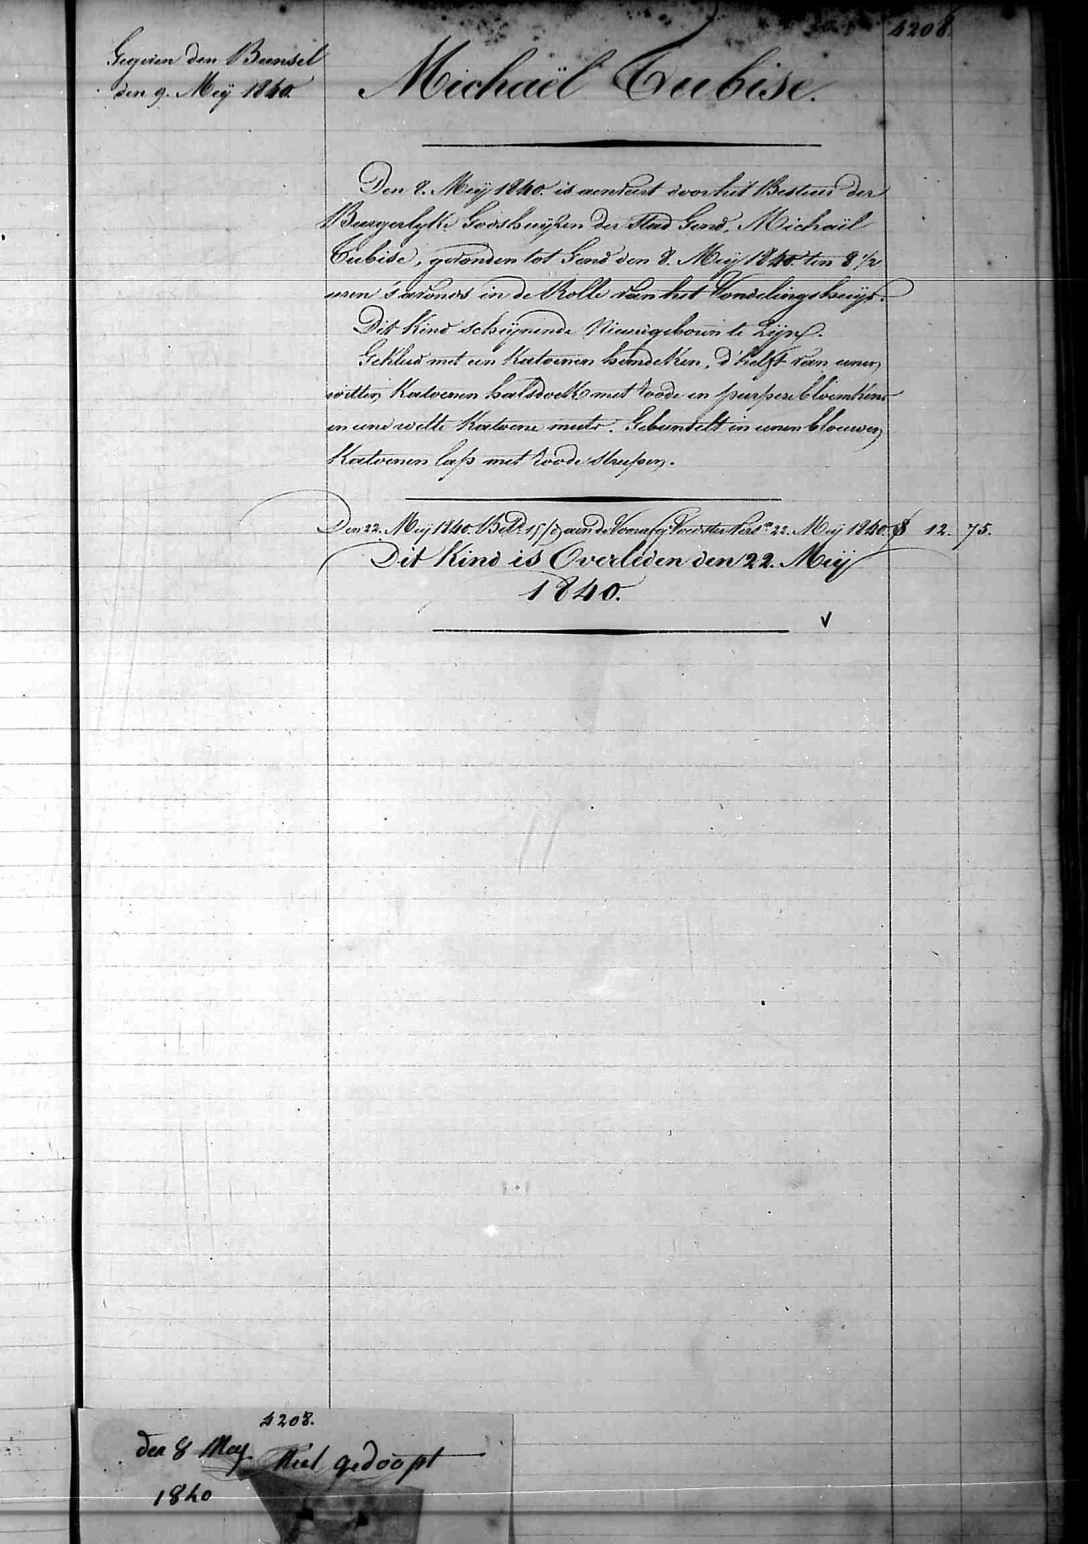 4208.
Gegeven den Bunsel
den 9. Meÿ 1840.
Michaël Tubise.
Den 8. Meÿ 1840. is aenveert door het Bestier der
Burgerlyke Godshuyzen der stad Gend, Michaël
Tubise, gevonden tot Gend den 8. Meÿ 1840. ten 8 1/2
uren 's avonds in de Rolle van het Vondelingshuys.
Dit Kind schynende Nieuwgeboren te Zyn.
Gekleed met een Katoenen hemdeken, d'helft van eenen
witten Katoenen halsdoek met roode en purpere bloemkens
en eene witte Katoene muts. Gebundelt in eenen blouwen
Katoenen lap met roode streepen.
Den 22. Meÿ 1840. Betd. 15/ aen de Voedster 22. Meÿ 1840. 12. 75.
Dit Kind is Overleden den 22. Meÿ
1840.
4208.
den 8 Mey. Niet gedoopt
1840